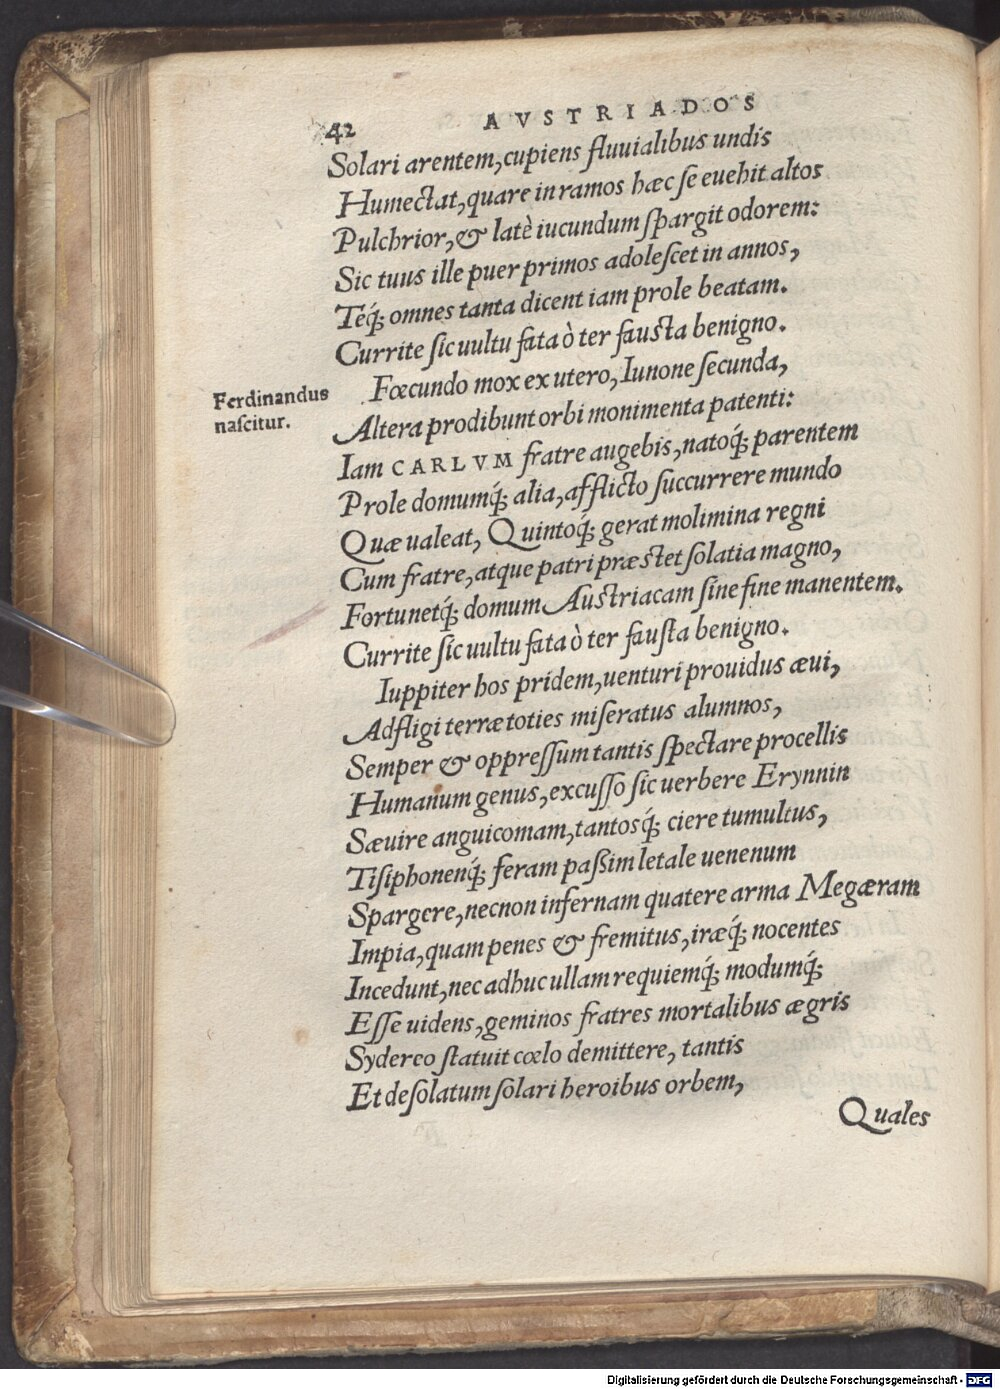 42 AVSTRIADOS
Solari arentem, cupiens fluuialibus undis
Humectat, quare in ramos hæc se euehit altos
Pulchrior, & latè iucundum spargit odorem:
Sic tuus ille puer primos adolescet in annos,
Téq́; omnes tanta dicent iam prole beatam.
Currite sic uultu fata ò ter fausta benigno.
Fœcundo mox ex utero, Iunone secunda,
Ferdinandus
nascitur.
Altera prodibunt orbi monimenta patenti:
Iam CARLVM fratre augebis, natoq́; parentem
Prole domumq́; alia, afflicto succurrere mundo
Quæ ualeat, Quintoq́; gerat molimina regni
Cum fratre, atque patri præstet solatia magno,
Fortunetq́; domum Austriacam sine fine manentem.
Currite sic uultu fata ò ter fausta benigno.
Iuppiter hos pridem, uenturi prouidus æui,
Adfligi terræ toties miseratus alumnos,
Semper & oppressum tantis spectare procellis
Humanum genus, excusso sic uerbere Erynnin
Sæuire anguicomam, tantosq́; ciere tumultus,
Tisiphonenq́; feram passim letale uenenum
Spargere, necnon infernam quatere arma Megæram
Impia, quam penes & fremitus, iræq́; nocentes
Incedunt, nec adhuc ullam requiemq́; modumq́;
Esse uidens, geminos fratres mortalibus ægris
Sydereo statuit cœlo demittere, tantis
Et desolatum solari heroibus orbem,
Quales
Digitalisierung gefördert durch die Deutsche Forschungsgemeinschaft - DFG